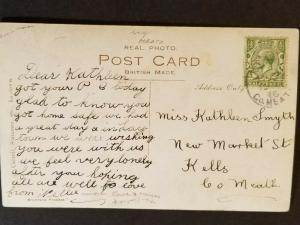 REAL PHOTO.
POST CARD
BRITISH MADE.
Address Only
Dear Kathleen
got your P.C today
glad to know you
got home safe we had
a great day in
town we were wishing
you were with us
we feel very lonely
after you hoping
all are well to love
from
Miss Kathleen Smyth
New Market St
Kells
Co Meath